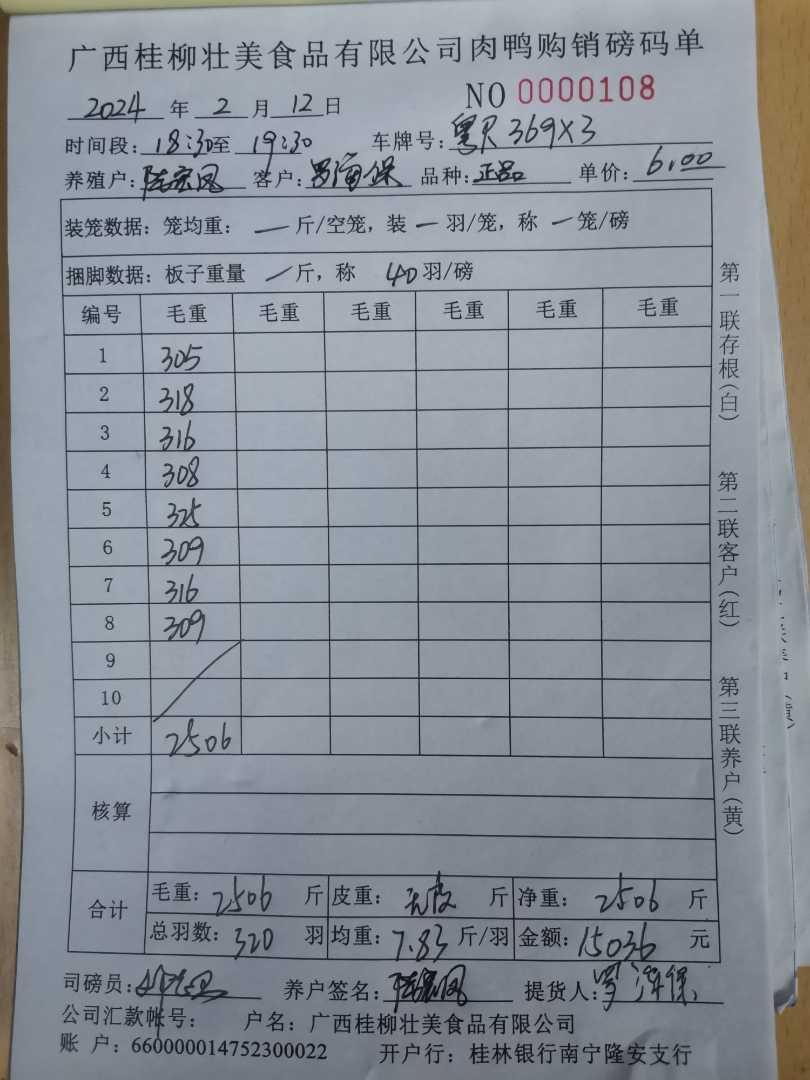 广西桂柳壮美食品有限公司肉鸭购销磅码单
2024 年 2 月 12 日 NO 0000108
时间段: 18:30至 19:30 车牌号: 369X3
养殖户: 凤 客户: 罗海保 品种: 正品 单价: 6.00
装笼数据: 笼均重: — 斤/空笼, 装 — 羽/笼, 称 — 笼/磅
捆脚数据: 板子重量 — 斤, 称 40 羽/磅
编号 毛重 毛重 毛重 毛重 毛重 毛重
1 305
2 318
3 316
4 308
5 325
6 309
7 316
8 309
9
10
小计 2506
核算
合计 毛重: 2506 斤 皮重: 无皮 斤 净重: 2506 斤
总羽数: 320 羽 均重: 7.83 斤/羽 金额: 15036 元
司磅员: 养户签名: 凤 提货人: 罗海保
公司汇款帐号: 户名: 广西桂柳壮美食品有限公司
账 户: 660000014752300022 开户行: 桂林银行南宁隆安支行
第一联存根(白)
第二联客户(红)
第三联养户(黄)